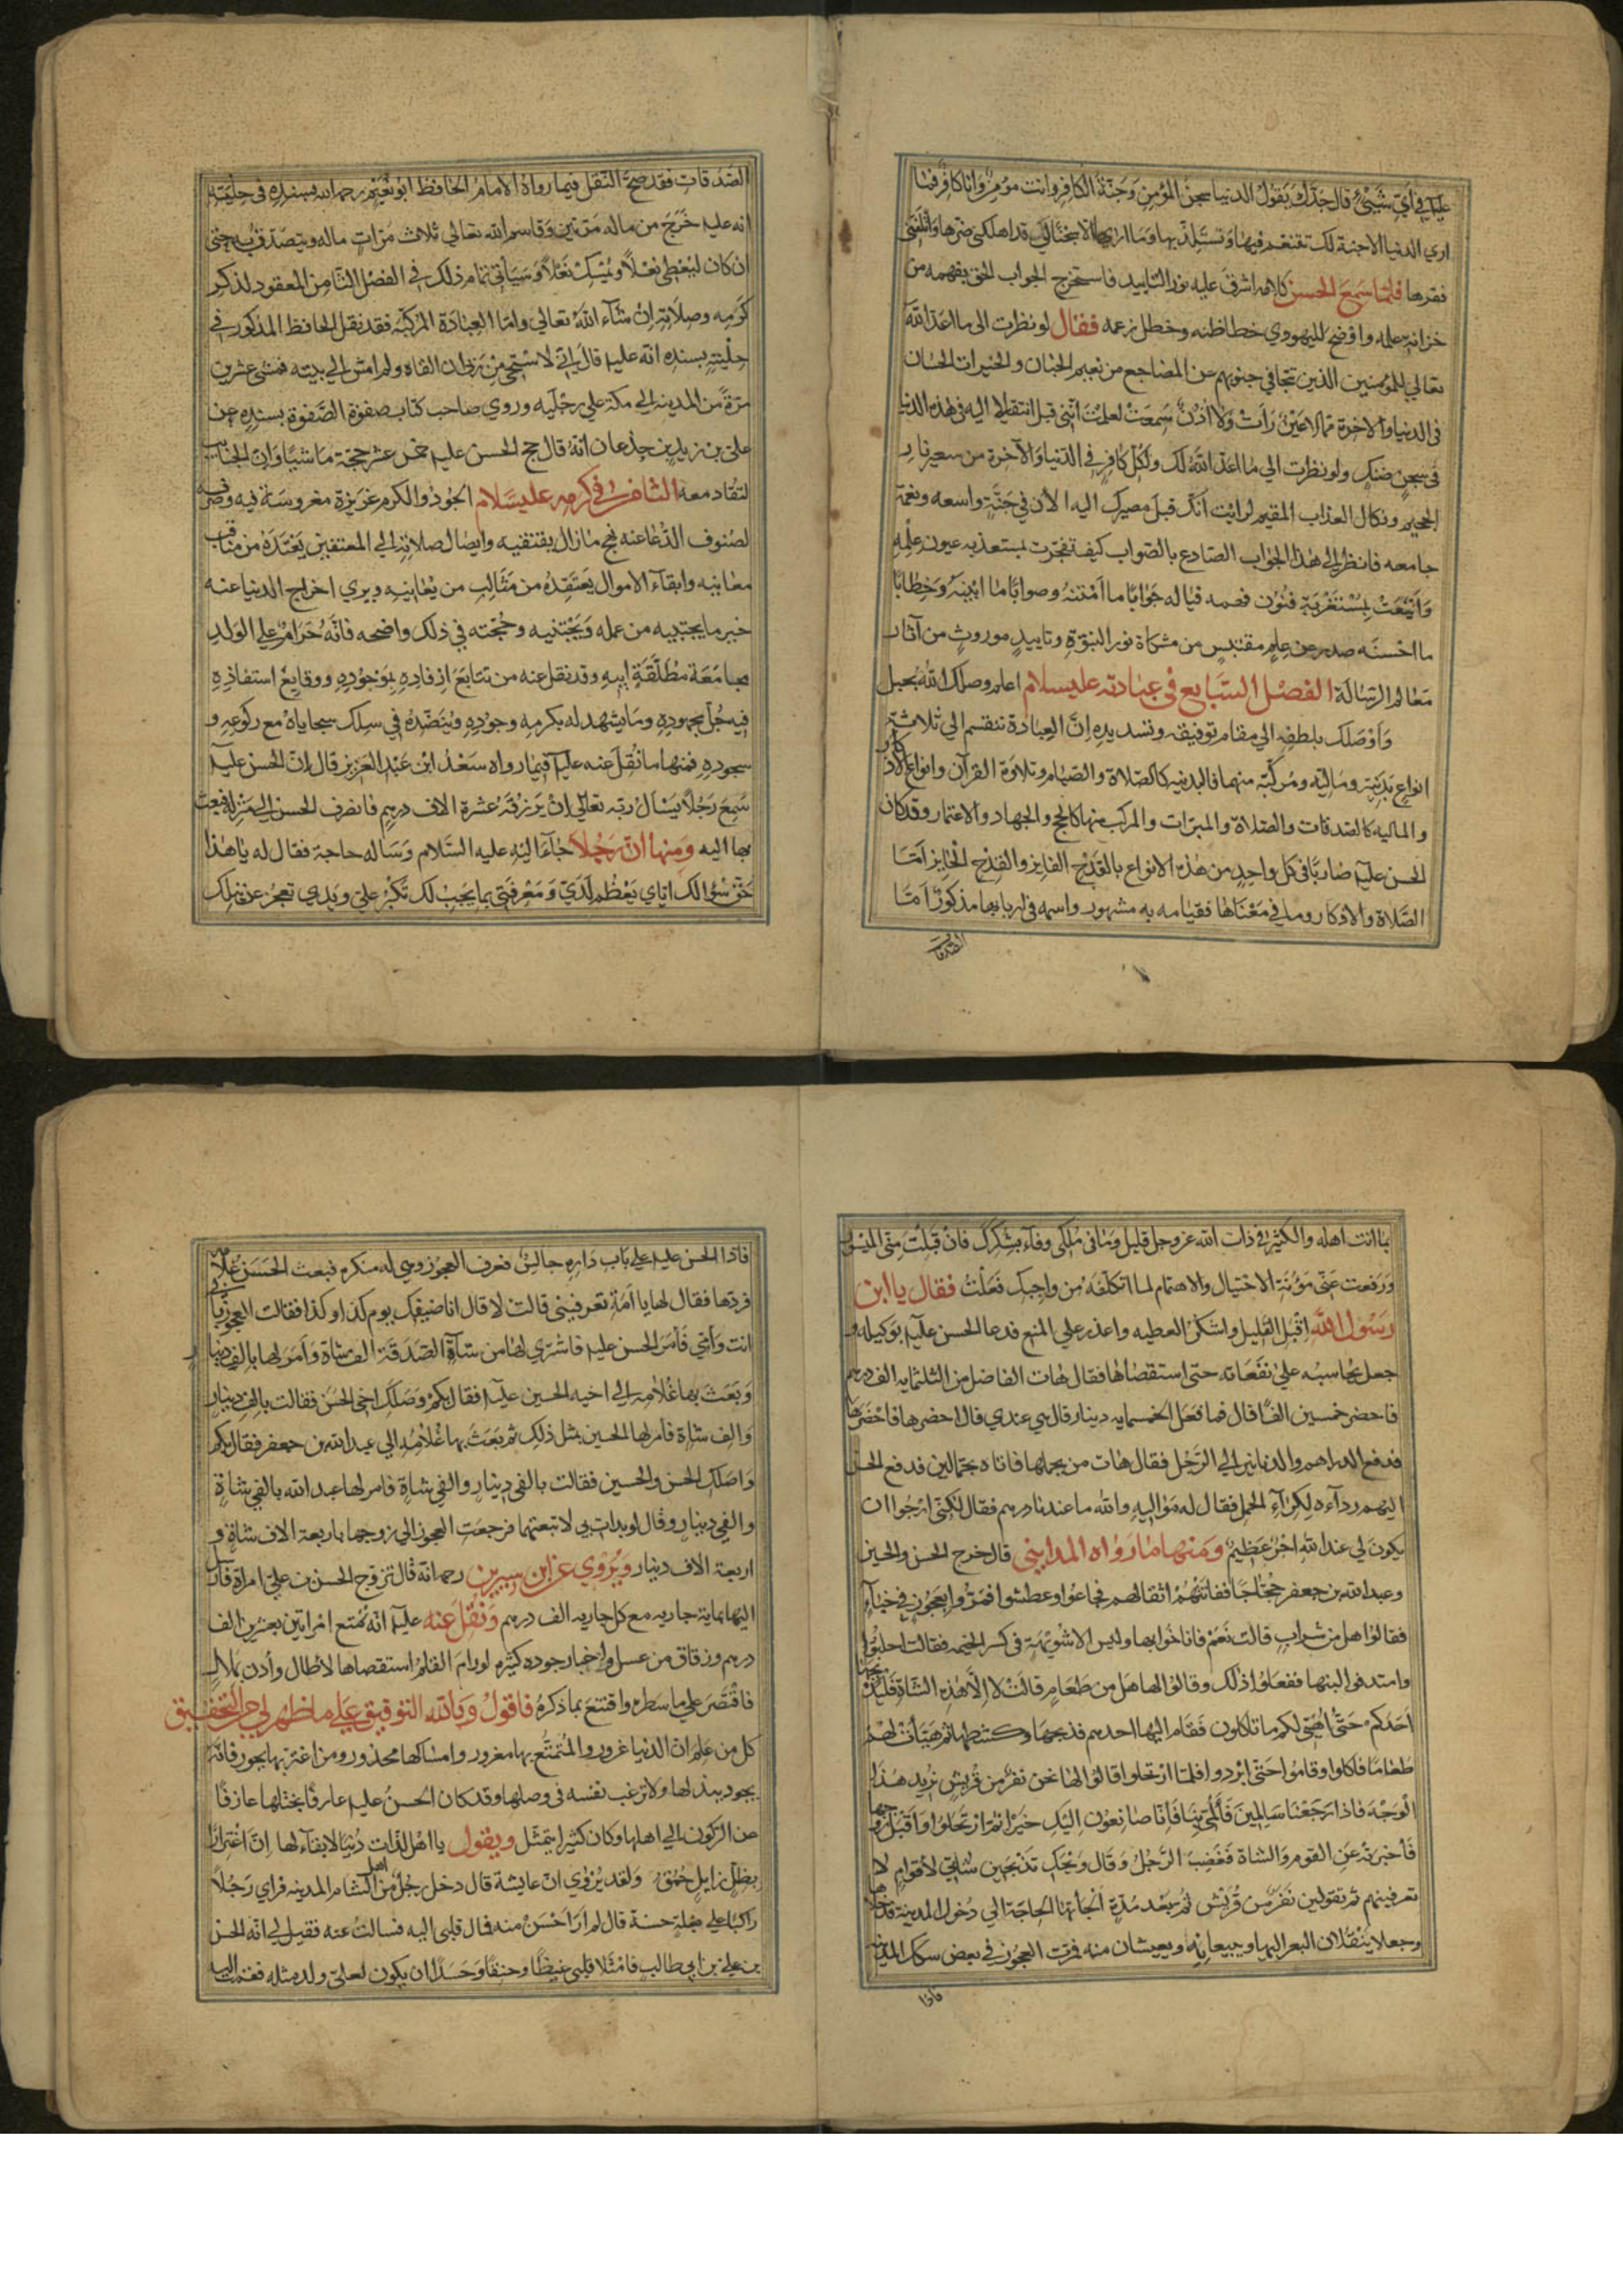 عليك في أيّ شيئ قال جدّك يقول الدنيا سجن المؤمن وجنّة الكافر وانت مؤمن وانا كافر فما
اري الدنيا الاجنة لك تتنعم فيها وتستلذ بها وما اراها الا سجنا لي قد اهلكني ضرها واتلفني
فقرها فلمّا سمع الحسن كلامه اشرق عليه نور التاييد فاستخرج الجواب الحق بفهمه من
خزانة علمه واوضح لليهودي خطا ظنه وخطل زعمه فقال لو نظرت الى ما اعدّ الله
تعالي للمؤمنين الذين تتجافي جنوبهم عن المضاجع من نعيم الجنان والخيرات الحسان
في الدنيا والاخرة ممّا لا عين رات ولا اذن سمعت لعلمت انّني قبل انتقالي اليه في هذه الدنيا
في سجن ضنك ولو نظرت الي ما اعدّ الله لك ولكل كافر في الدنيا والآخرة من سعير نار
الجحيم ونكال العذاب المقيم لرايت انك قبل مصيرك اليه الأن في جنّة واسعه ونعمة
جامعه فانظر الى هذا الجواب الصّادع بالصّواب كيف تفجرت بمستعذبه عيون علمه
واينعت بمستغربه فنون فهمه فيا له جوابًا ما امتنه وصوابًا ما ابينه وخطابًا
ما احسنه صدر عن علم مقتبس من مشكاة نور النبوّة وتاييد موروث من آثار
معالم الرّسالة الفصل السّابع في عبادته عليه سلام اعلم وصلك الله بحبل
واوصلك بلطفه الي مقام توفيقه وتسديده انّ العبادة تنقسم الي ثلاثة
انواع بدنيّة وماليّه ومركّبة منهما فالبدنيه كالصّلاة والصّيام وتلاوة القرآن وانواع الاذكار
والماليه كالصّدقات والصّلاة والمبرّات والمركب منهما كالحج والجهاد والاعتمار وقد كان
الحسن عليه ضاربًا في كل واحد من هذه الانواع بالقدح الفايز والقدح الحايز امّا
الصّلاة والاذكار وما في معناها فقيامه به مشهور واسمه في اربابها مذكور امّا
الصّدقات
الصّدقات فقد صحّ النّقل فيما رواه الامام الحافظ ابو نعيم رحمه الله بسنده في حليته
انه عليه خرج من ماله مرّتين وقاسم الله تعالي ثلاث مرّات ماله ويتصدق به حتى
ان كان ليعطي نعلاً ويمسك نعلاً وسياتي تمام ذلك في الفصل الثّامن المعقود لذكر
كرمه وصلاته ان شآء الله تعالي وامّا العبادة المركّبه فقد نقل الحافظ المذكور في
حليته بسنده انّه عليه قال انّي لاستحي من ربّي ان القاه ولم امش الي بيته فمشي عشرين
مرّة من المدينه الي مكة علي رجليه وروي صاحب كتاب صفوة الصّفوة بسنده عن
علي بن زيد بن جدعان انّه قال حج الحسن عليه خمس عشر حجّة ماشيًا وانّ الجنايب
لتقاد معه الثامن في كرمه عليه سلام الجود والكرم غريزة مغروسة فيه
لصنوف الدّنا عنه نهج مازال يقتفيه وايصال صلاته الي المعتفين يعتدّه من مناقب
معانيه وابقآء الاموال يعتقده من مثالب من يعانيه ويري اخراج الدنيا عنه
خير ما يحتبيه من عمله ويجتنيه وحجّته في ذلك واضحه فانّه حرام علي الولد
مجامعة مطلّقة ابيه وقد نقل عنه من تتابع ارفاده بموجوده ووقايع استنفاذه
فيه جلّ مجهوده وما يشهد له بكرمه وجوده وينضّده في سلك سجاياه مع ركوعه و
سجوده فمنها ما نقل عنه عليه فيما رواه سعد ابن عبد العزيز قال انّ الحسن عليه
سمع رجلاً يسأل ربّه تعالي ان يرزقه عشرة الاف درهم فانصرف الحسن الي منزله فبعث
بها اليه ومنها انّ رجلاً جاء اليه عليه السّلام وساله حاجة فقال له يا هذا
حق سؤالك اياي يعظم لديّ ومعرفتي بما يجب لك تكبر علي ويدي تعجز عن نيلك
بما انت اهله والكثير في ذات الله عز وجل قليل وما في ملكي وفاء بشكرك فان قبلت منّي الميسور
ورفعت عنّي مؤنة الاحتيال والاهتمام لما اتكلّفه من واجبك فعلت فقال يا ابن
رسول الله اقبل القليل واشكر العطيه واعذر علي المنع فدعا الحسن عليه بوكيله و
جعل يحاسبه علي نفقاته حتى استقصاها فقال هات الفاضل من الثلثمايه الف درهم
فاحضر خمسين الفًا قال فما فعل الخمسمايه دينار قال هي عندي قال احضرها فاحضرها
فدفع الدراهم والدنانير الي الرّجل فقال هات من يحملها فاتاه بحمّالين فدفع الحسن
اليهم رداءه لكراء الحمل فقال له مواليه والله ما عندنا درهم فقال لكنّي ارجوا ان
يكون لي عند الله اجر عظيم ومنها ما رواه المدايني قال خرج الحسن والحسين
وعبدالله بن جعفر حجّاجًا ففاتتهم اثقالهم فجاعوا وعطشوا فمرّوا بعجوز في خباء
فقالوا هل من شراب قالت نعم فاناخوا بها وليس الا شويهة في كسر الخيمه فقالت احلبوها
وامتذقوا لبنها ففعلوا ذلك وقالوا لها هل من طعام قالت لا الّا هذه الشّاة فليذبحنها
احدكم حتّي اهيّئ لكم ما تاكلون فقام اليها احدهم فذبحها وكشطها ثم هيّأت لهم
طعامًا فاكلوا وقاموا حتّى ابردوا فلمّا ارتحلوا قالوا لها نحن نفر من قريش نريد هذا
الوجه فاذا رجعنا سالمين فالمّي بنا فانّا صانعون اليك خيرًا ثم ارتحلوا واقبل زوجها
فأخبرته عن القوم والشاة فغضب الرّجل وقال ويحك تذبحين شاتي لأقوام لا
تعرفينهم ثم تقولين نفر من قريش ثم بعد مدّة الجأتها الحاجة الي دخول المدينة فدخلاها
وجعلا ينقلان البعر اليها ويبيعانه ويعيشان منه فمرّت العجوز في بعض سكك المدينه
فاذا
فاذا الحسن عليه علي باب داره جالس فعرف العجوز وهي له منكره فبعث الحسن غلامه
فردّها فقال لها يا امة تعرفيني قالت لا قال انا ضيفك يوم كذا وكذا فقالت العجوز بابي
انت وأمّي فأمر الحسن عليه فاشتري لها من شآء الصّدقة الف شاة وأمر لها بالف دينار
وبعث بها غلامه الي اخيه الحسين عليه فقال بكم وصلك اخي الحسن فقالت بالف دينار
والف شاة فامر لها الحسين بمثل ذلك ثم بعث بها غلامه الي عبدالله بن جعفر فقال بكم
واصلك الحسن والحسين فقالت بالفي دينار والفي شاة فامر لها عبد الله بالفي شاة
والفي دينار وقال لو بدات بي لاتبعتهما فرجعت العجوز الي زوجها باربعة الاف شاة و
اربعة الاف دينار ويروي عن ابن سيرين رحمه انّه قال تزوج الحسن بن علي امراة فارسل
اليها بماية جاريه مع كل جاريه الف درهم ونقل عنه عليه انّه تمتع امراتين بعشرين الف
درهم وزقاق من عسل واخبار جوده كثيره لو رام القلم استقصاها لأطال وأذن بملال
فاقتصر علي ما سطره واقتنع بما ذكره فاقول وبالله التوفيق علي ما ظهر لي من التحقيق
كل من علم انّ الدنيا غرور والتّمتّع بها مغرور وامساكها محذور ومن اغترّ بها يجور فانّه
يجود ببذلها ولا ترغب نفسه في وصلها وقد كان الحسن عليه عارفًا بختلها عازفًا
عن الركون الي اهلها وكان كثيرا يتمثّل ويقول يا اهل لذّات دنيا لا بقاء لها انّ اغترارًا
بظل زايل حمق ولقد يروي انّ عايشة قال دخل رجل من اهل الشام المدينه فراي رجلاً
راكبًا علي بغلة حسنة قال لم ار احسن منه فمال قلبي اليه فسالت عنه فقيل لي انّه الحسن
بن علي بن ابي طالب فامتلا قلبي غيظًا وحنقًا وحسدًا ان يكون لعليّ ولد مثله فقمت اليه